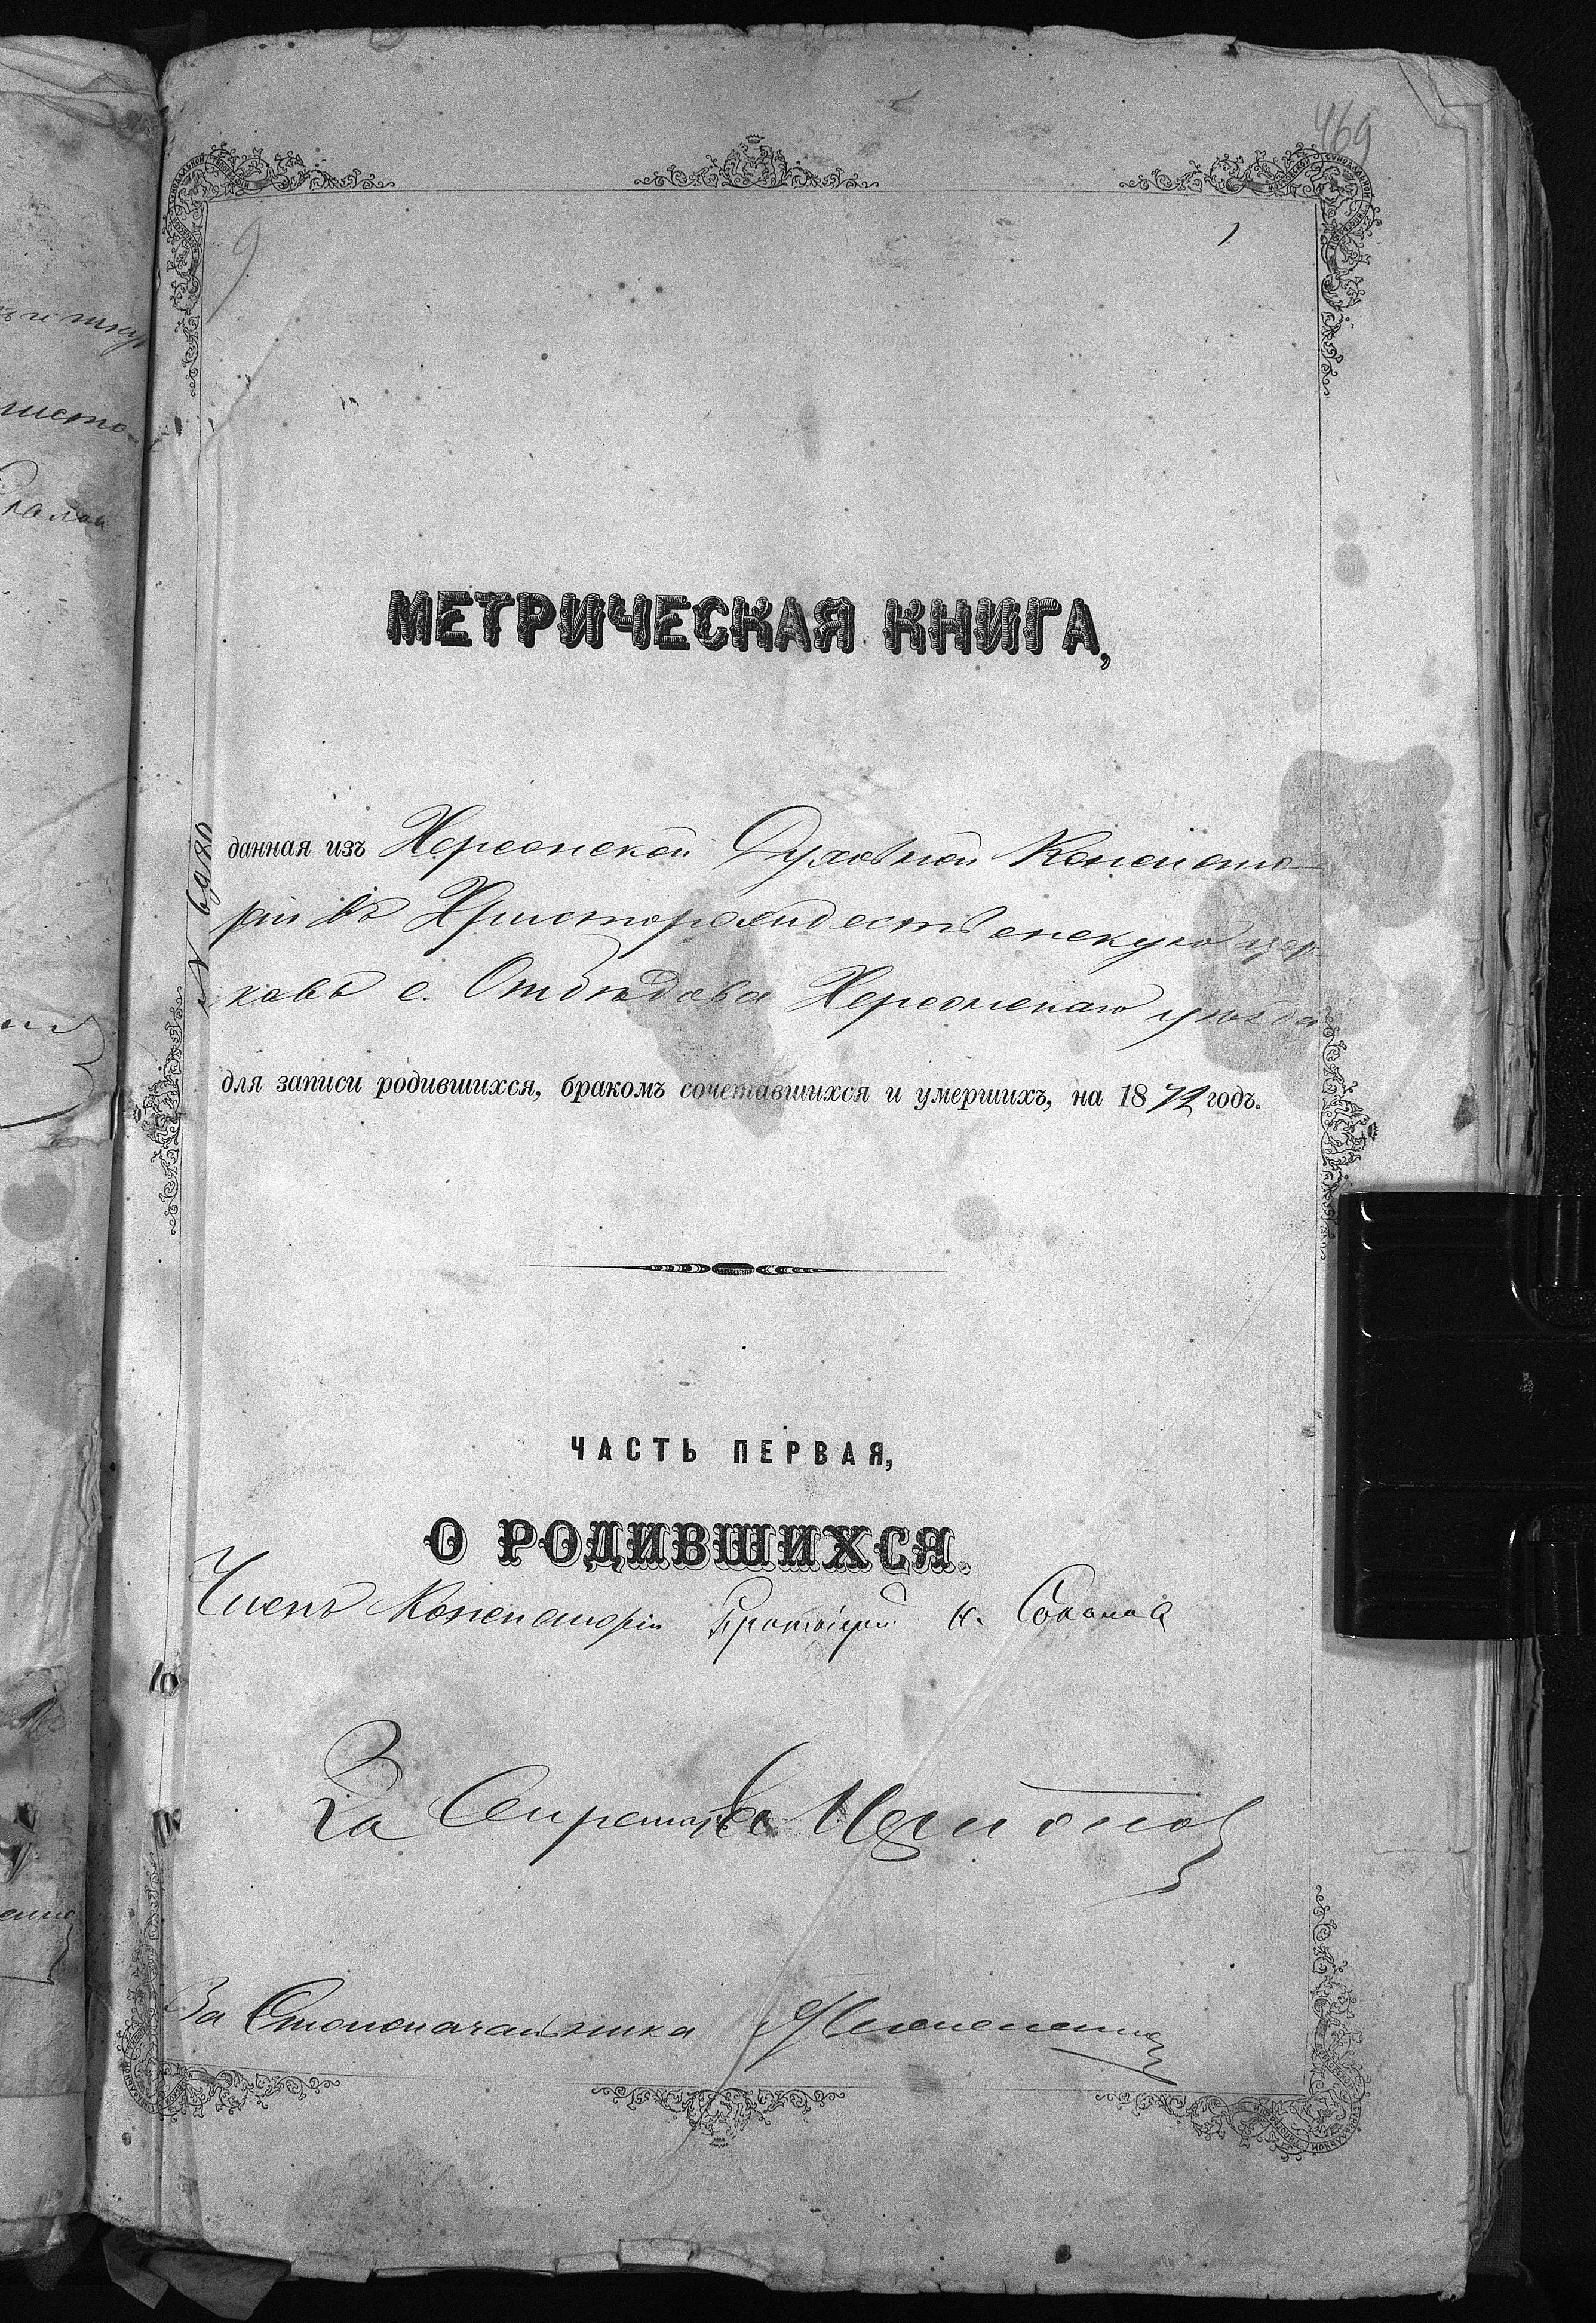 469
9
МЕТРИЧЕСКАЯ КНИГА,
№ 6980
данная изъ Херсонской Духовной Консисто-
ріи въ Христорождественскую цер-
ковь с. Отбѣдова Херсонскаго уѣзда
для записи родившихся, бракомъ сочетавшихся и умершихъ, на 1872 годъ.
ЧАСТЬ ПЕРВАЯ,
О РОДИВШИХСЯ.
Членъ Консисторіи Протоіерей
За Секретаря
За Столоначальника